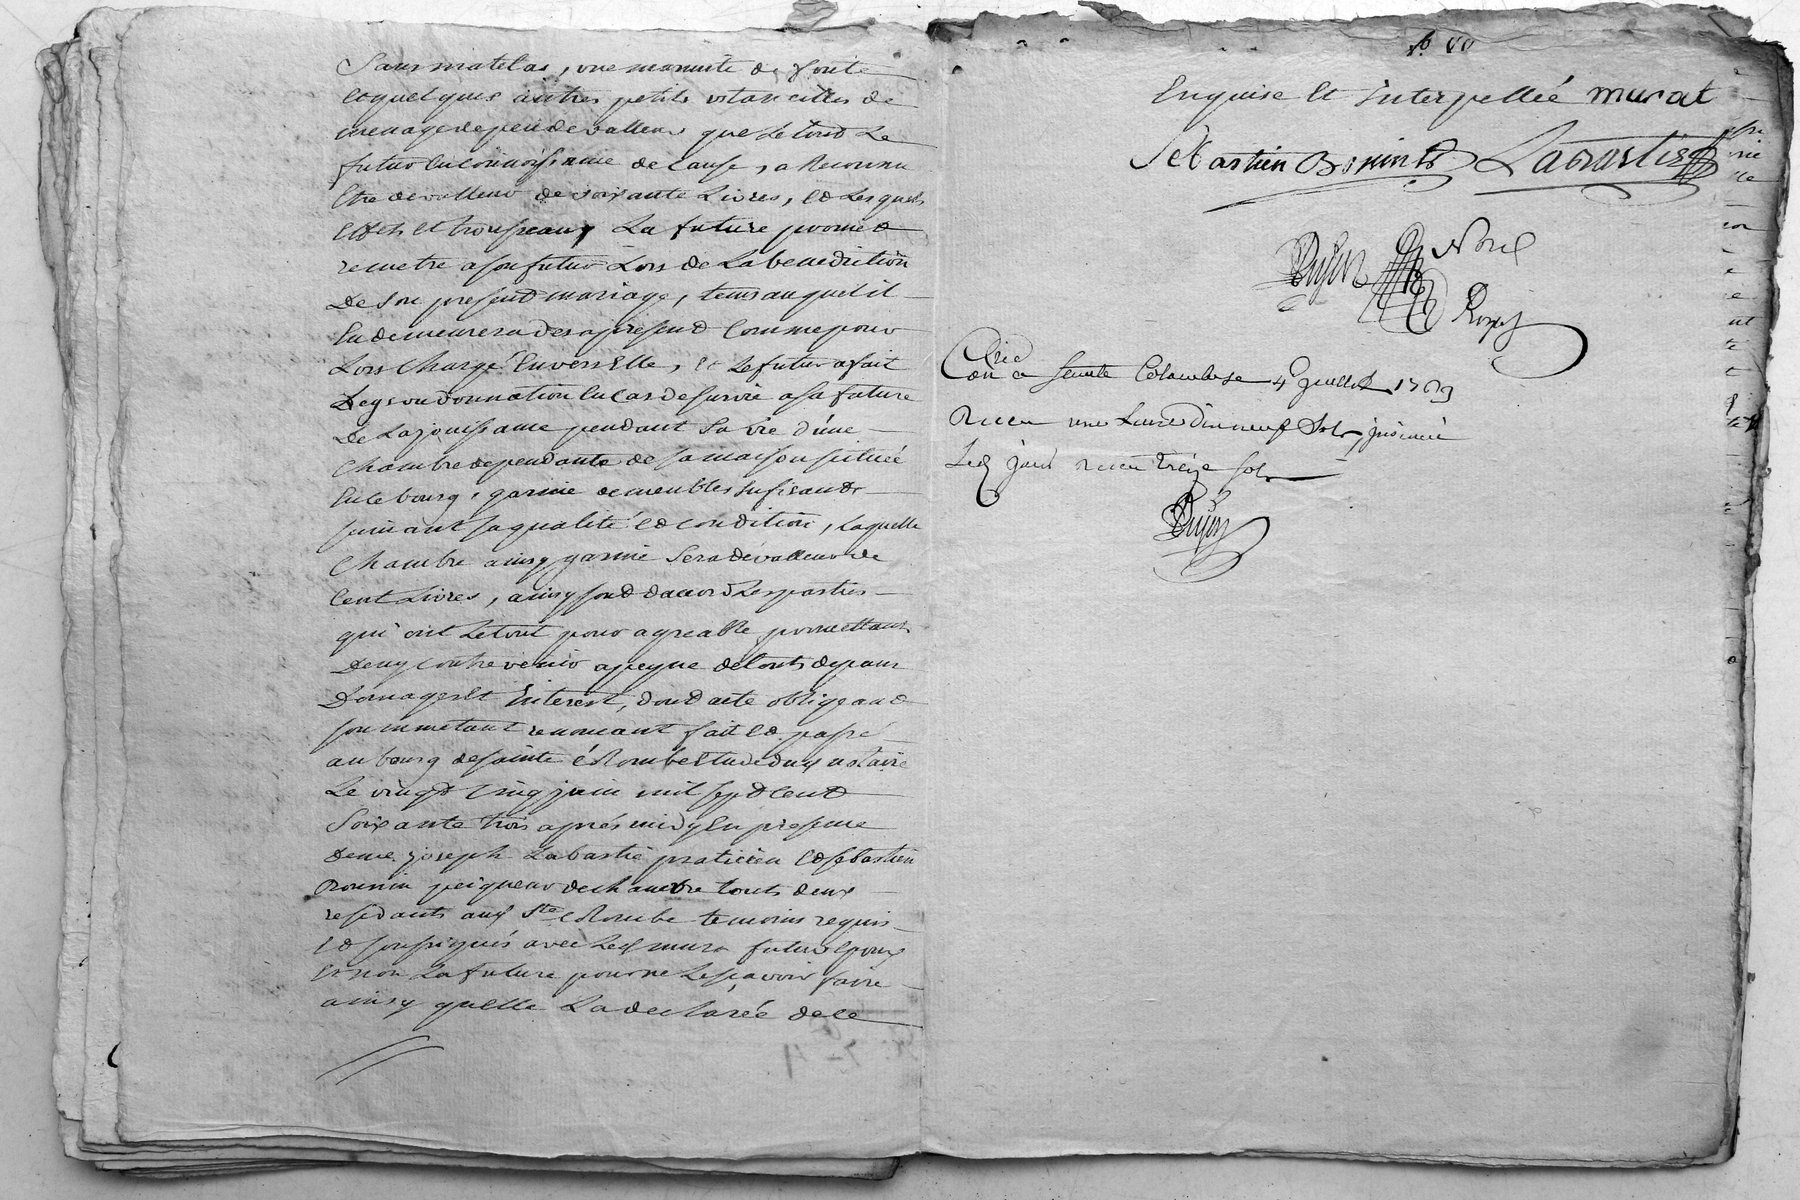 Sans matelas, une marmite de fonte
et quelques autres petits ustancilles de
menage de peu de valleur que le tout le
futur en connoissance de cause, a reconnu
Etre de valleur de soixante Livres, et Lesquels
Effets et trousseaux La future promet
remetre a son futur Lors de La benediction
De Son present mariage, tems auquel il
En demeurera des a present Comme pour
Lors Chargé Envers Elle, et Le futur a fait
Legs ou donnation En cas de survie a sa future
De La jouissance pendant Sa vie d'une
Chambre dependante de sa maison scituée
En ce bourg, garnie de meubles sufisants
suivant sa qualité et condition, Laquelle
Chambre ainsy garnie Sera de valleur de
Cent Livres, ainsy sont d'accord Les parties
qui ont Le tout pour agreable promettant
De ny contrevenir a peyne de touts depans
Domages et Interest, dont acte obligeant
soummetant renoncant fait et passé
au bourg de sainte Colombe Etude du notaire
Le vingt Cinq juin mil sept Cent
Soixante trois après midy En presence
de me joseph Labastie praticien et Sebastien
peigneur de chanvre touts deux
residants aud Ste Colombe temoins requis
et soussignés avec Led murat futur Epoux
Et non La future pour ne Le sçavoir faire
ainsy quelle La declarée de ce
Enquise Et Interpellée murat
Sebastien Labastie
Dujon Nore
Roy
Con a Sainte Colombe 4e juillet 1763
Receu une Livre dix neuf Sols
receu treize sols
Dujon